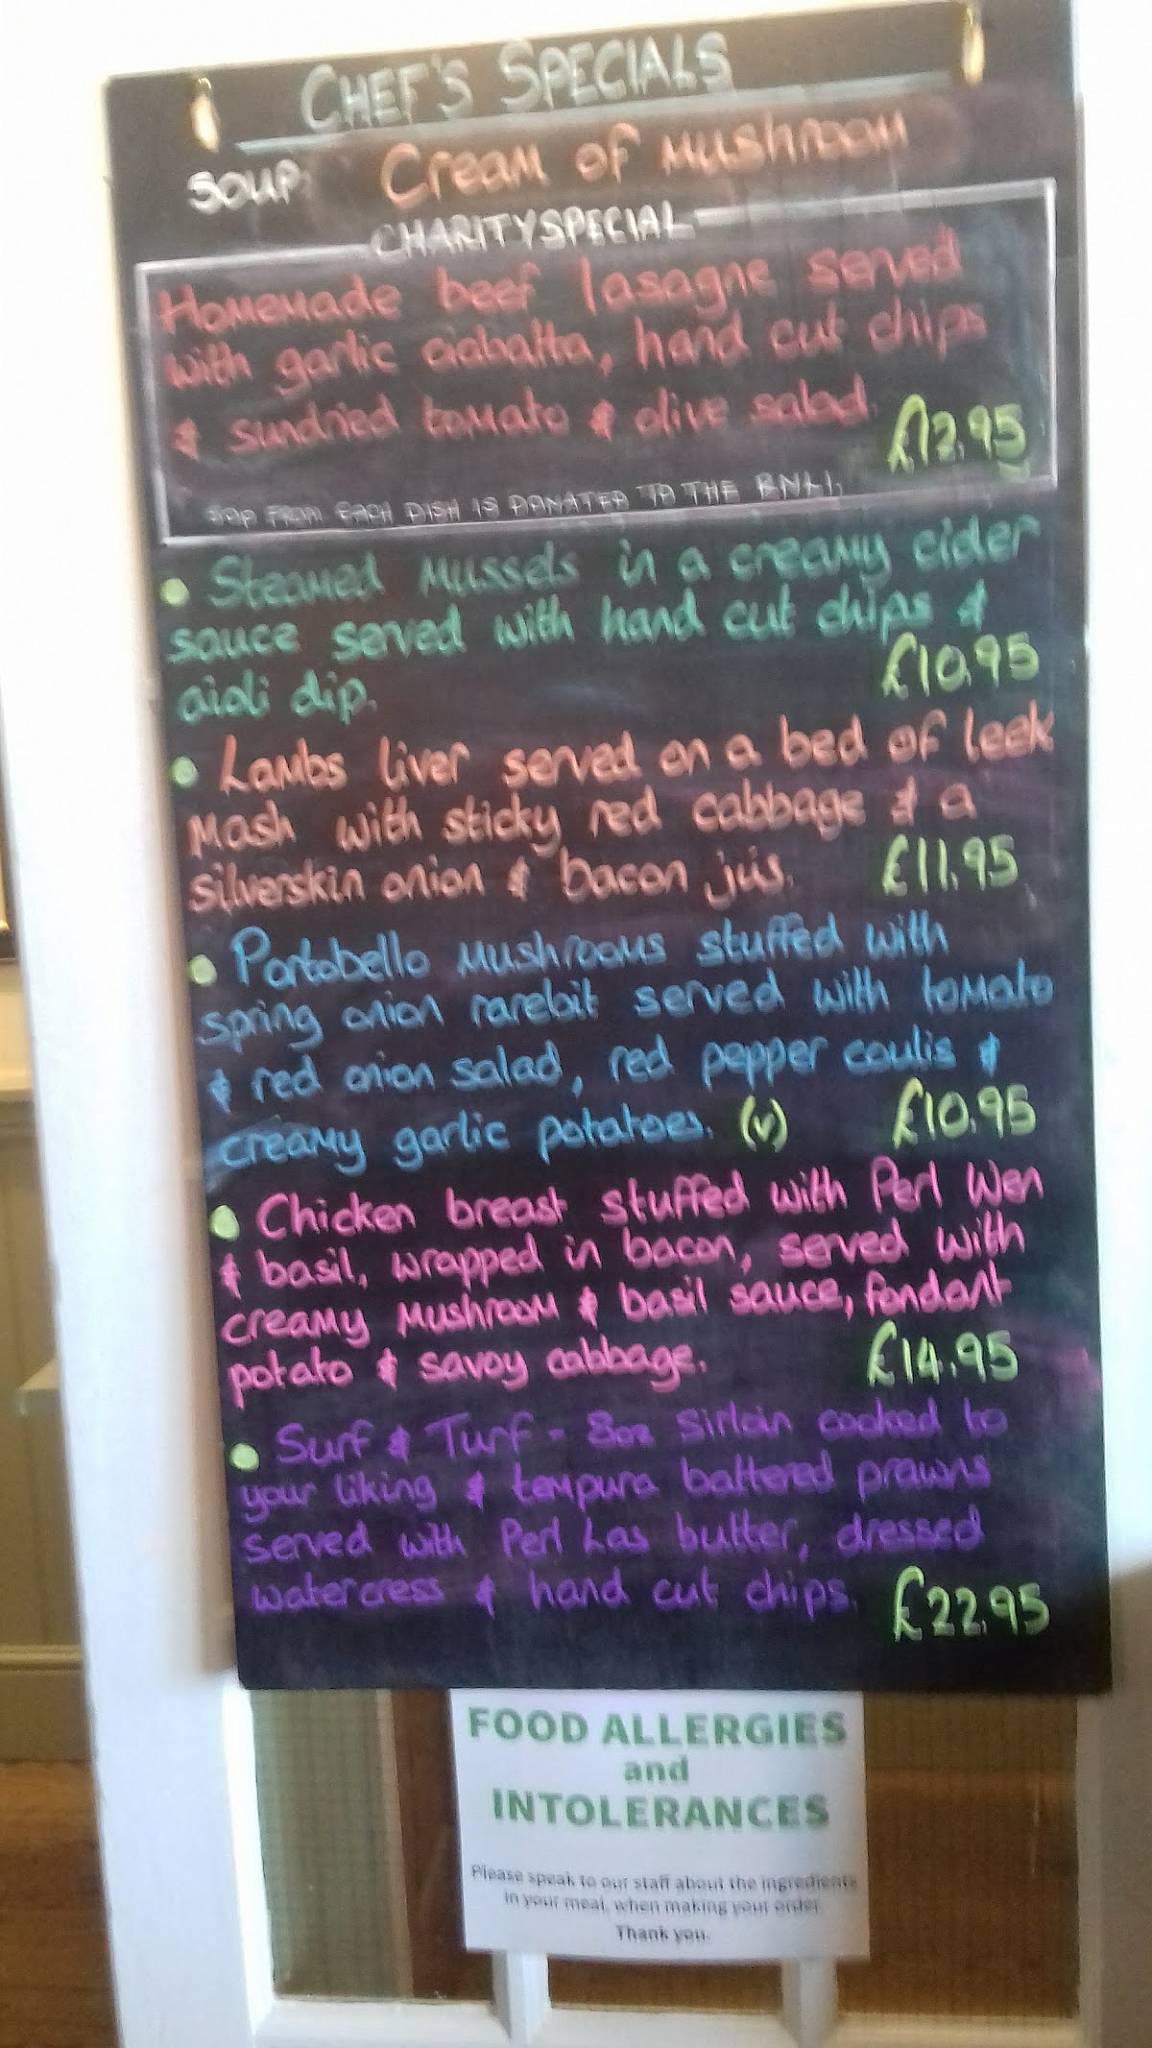 CHEF'S SPECIALS
SOUP: Cream of Mushroom
CHARITY SPECIAL
Homemade beef lasagne served
with garlic ciabatta, hand cut chips
& sundried tomato & olive salad.
£12.95
50P FROM EACH DISH IS DONATED TO THE RNLI.
• Steamed Mussels in a creamy cider
sauce served with hand cut chips &
aioli dip. £10.95
• Lambs liver served on a bed of leek
Mash with sticky red cabbage & a
silverskin onion & bacon jus. £11.95
• Portobello Mushrooms stuffed with
spring onion rarebit served with tomato
& red onion salad, red pepper coulis &
creamy garlic potatoes. (v) £10.95
• Chicken breast stuffed with Perl Wen
& basil, wrapped in bacon, served with
creamy Mushroom & basil sauce, fondant
potato & savoy cabbage. £14.95
• Surf & Turf - 8oz Sirloin cooked to
your liking & tempura battered prawns
served with Perl Las butter, dressed
watercress & hand cut chips. £22.95
FOOD ALLERGIES
and
INTOLERANCES
Please speak to our staff about the ingredients
in your meal, when making your order.
Thank you.